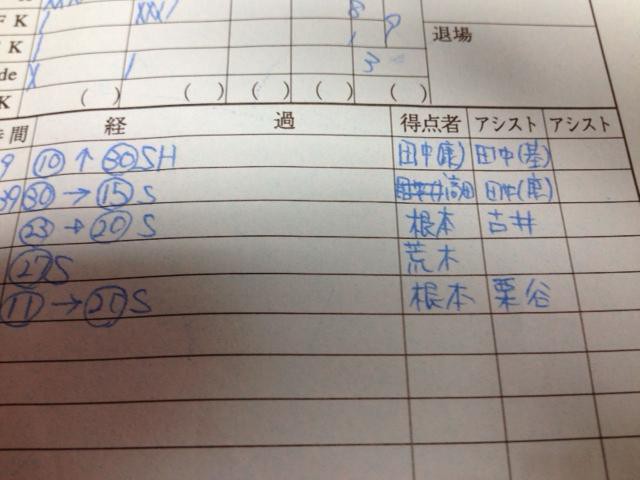 F K 8
K 1 9 退場
de 3
K ( ) ( ) ( ) ( ) ( )
時間 経 過 得点者 アシスト アシスト
9 ⑩ ↑ ㉚ SH 田中(庫) 田中(基)
39 ㉚ → ⑮ S 高田 田中(庫)
㉓ → ⑳ S 根本 古井
㉗ S 荒木
⑪ → ⑳ S 根本 栗谷